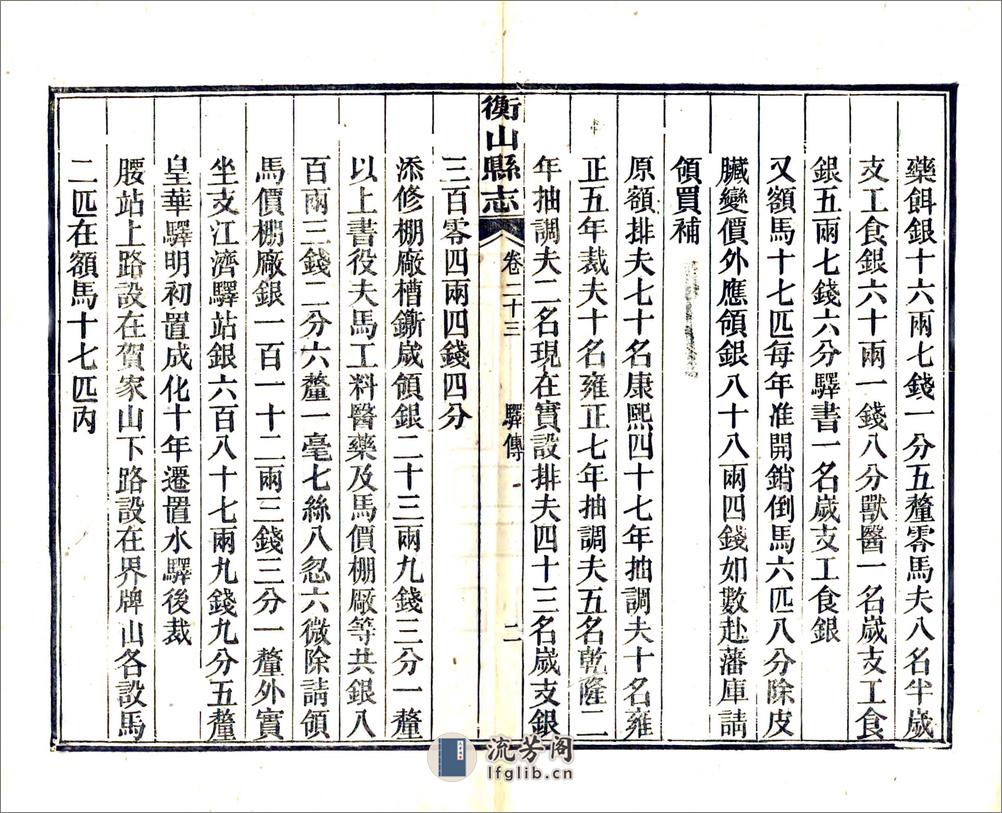 藥餌銀十六兩七錢一分五釐零馬夫八名半歲
支工食銀六十兩一錢八分獸醫一名歲支工食
銀五兩七錢六分驛書一名歲支工食銀
又額馬十七匹每年准開銷倒馬六匹八分除皮
臟變價外應領銀八十八兩四錢如數赴藩庫請
領買補
原額排夫七十名康熙四十七年抽調夫十名雍
正五年裁夫十名雍正七年抽調夫五名乾隆二
年抽調夫二名現在實設排夫四十三名歲支銀
衡山縣志
卷二十三
驛傳
二
三百零四兩四錢四分
添修棚廠槽鍘歲領銀二十三兩九錢三分一釐
以上書役夫馬工料醫藥及馬價棚廠等共銀八
百兩三錢二分六釐一毫七絲八忽六微除請領
馬價棚廠銀一百一十二兩三錢三分一釐外實
坐支江濟驛站銀六百八十七兩九錢九分五釐
皇華驛明初置成化十年遷置水驛後裁
腰站上路設在賀家山下路設在界牌山各設馬
二匹在額馬十七匹內
流芳阁
lfglib.cn